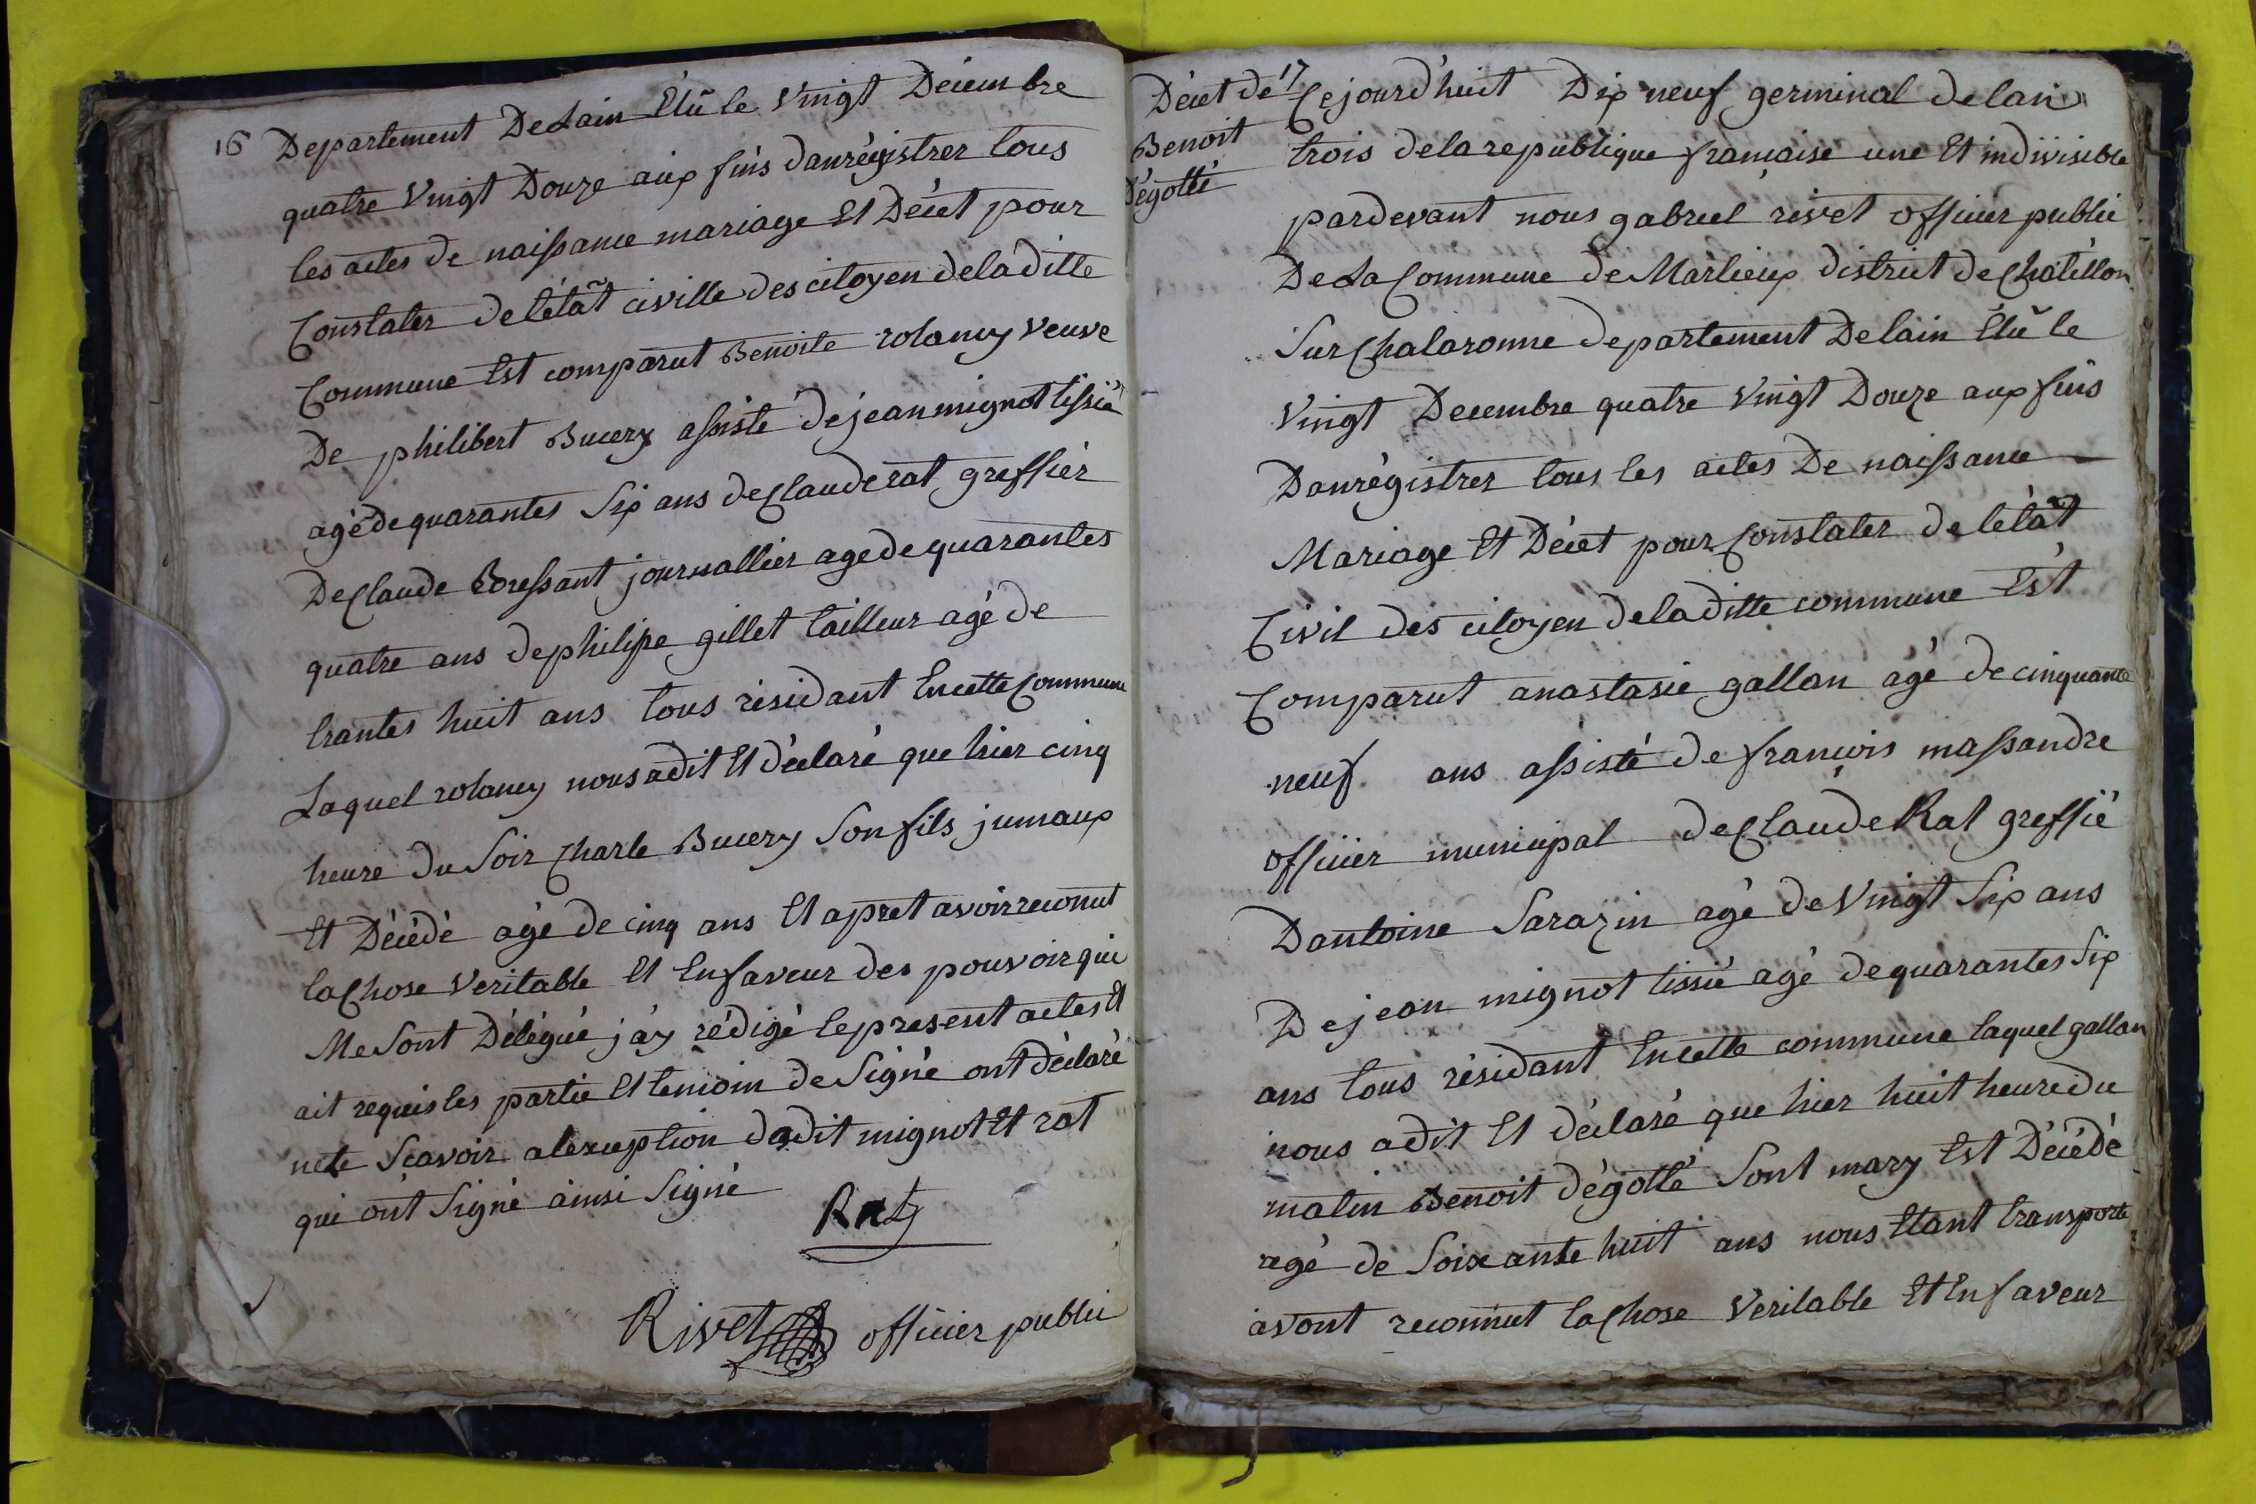 16
Departement DeLain Elû le Vingt Décembre
quatre Vingt Douze aux fins danrégistrer tous
les actes de naissance mariage Et Décet pour
Constater de l'état civille des citoyen deladitte
Commune Est comparut Benoite rolancy veuve
De philibert Bucery assisté de jean mignot tissié
agé de quarantes Six ans de Claude rat greffiér
De Claude Boussant journallier age de quarantes
quatre ans de philipe gillet tailleur agé de
trantes huit ans tous résidant Encette Commune
Laquel rolancy nous adit Et déclaré que hier cinq
heure du Soir Charle Bucery Son fils jumaux
Et Décédé agé de cinq ans Et apret avoir reconnut
la Chose Veritable Et Enfaveur des pouvoir qui
Me Sont Délégué j'ay rédigé le present actes Et
ait requis les partie Et temoin de Signé ont déclaré
nete Scavoir alexception dudit mignot Et rat
qui ont Signé ainsi Signé
Rat
Rivet officier public
Décet de
Benoit
Dégotté
17
Cejourd'huit Dix neuf germinal delan
trois dela republique francaise une Et indivisible
pardevant nous gabriel rivet officier public
De La Commune de Marlieux district de Chatillon
Sur Chalaronne departement Delain Elû le
Vingt Decembre quatre Vingt Douze aux fins
Danrégistrer tous les actes De naissance
Mariage Et Décet pour Constater de l'état
Civil des citoyen deladitte commune Est
Comparut anastasie gallan agé de cinquante
neuf ans assisté de francois massandre
officier municipal de Claude Rat greffié
Dantoine Sarazin agé de Vingt Six ans
De jean mignot tissié agé de quarantes Six
ans tous résidant Encette commune laquel gallan
nous adit Et déclaré que hier huit heure du
matin Benoit dégotté Sont mary Est Décédé
agé de Soixante huit ans nous Etant transporte
avont reconnut la Chose Veritable Et Enfaveur